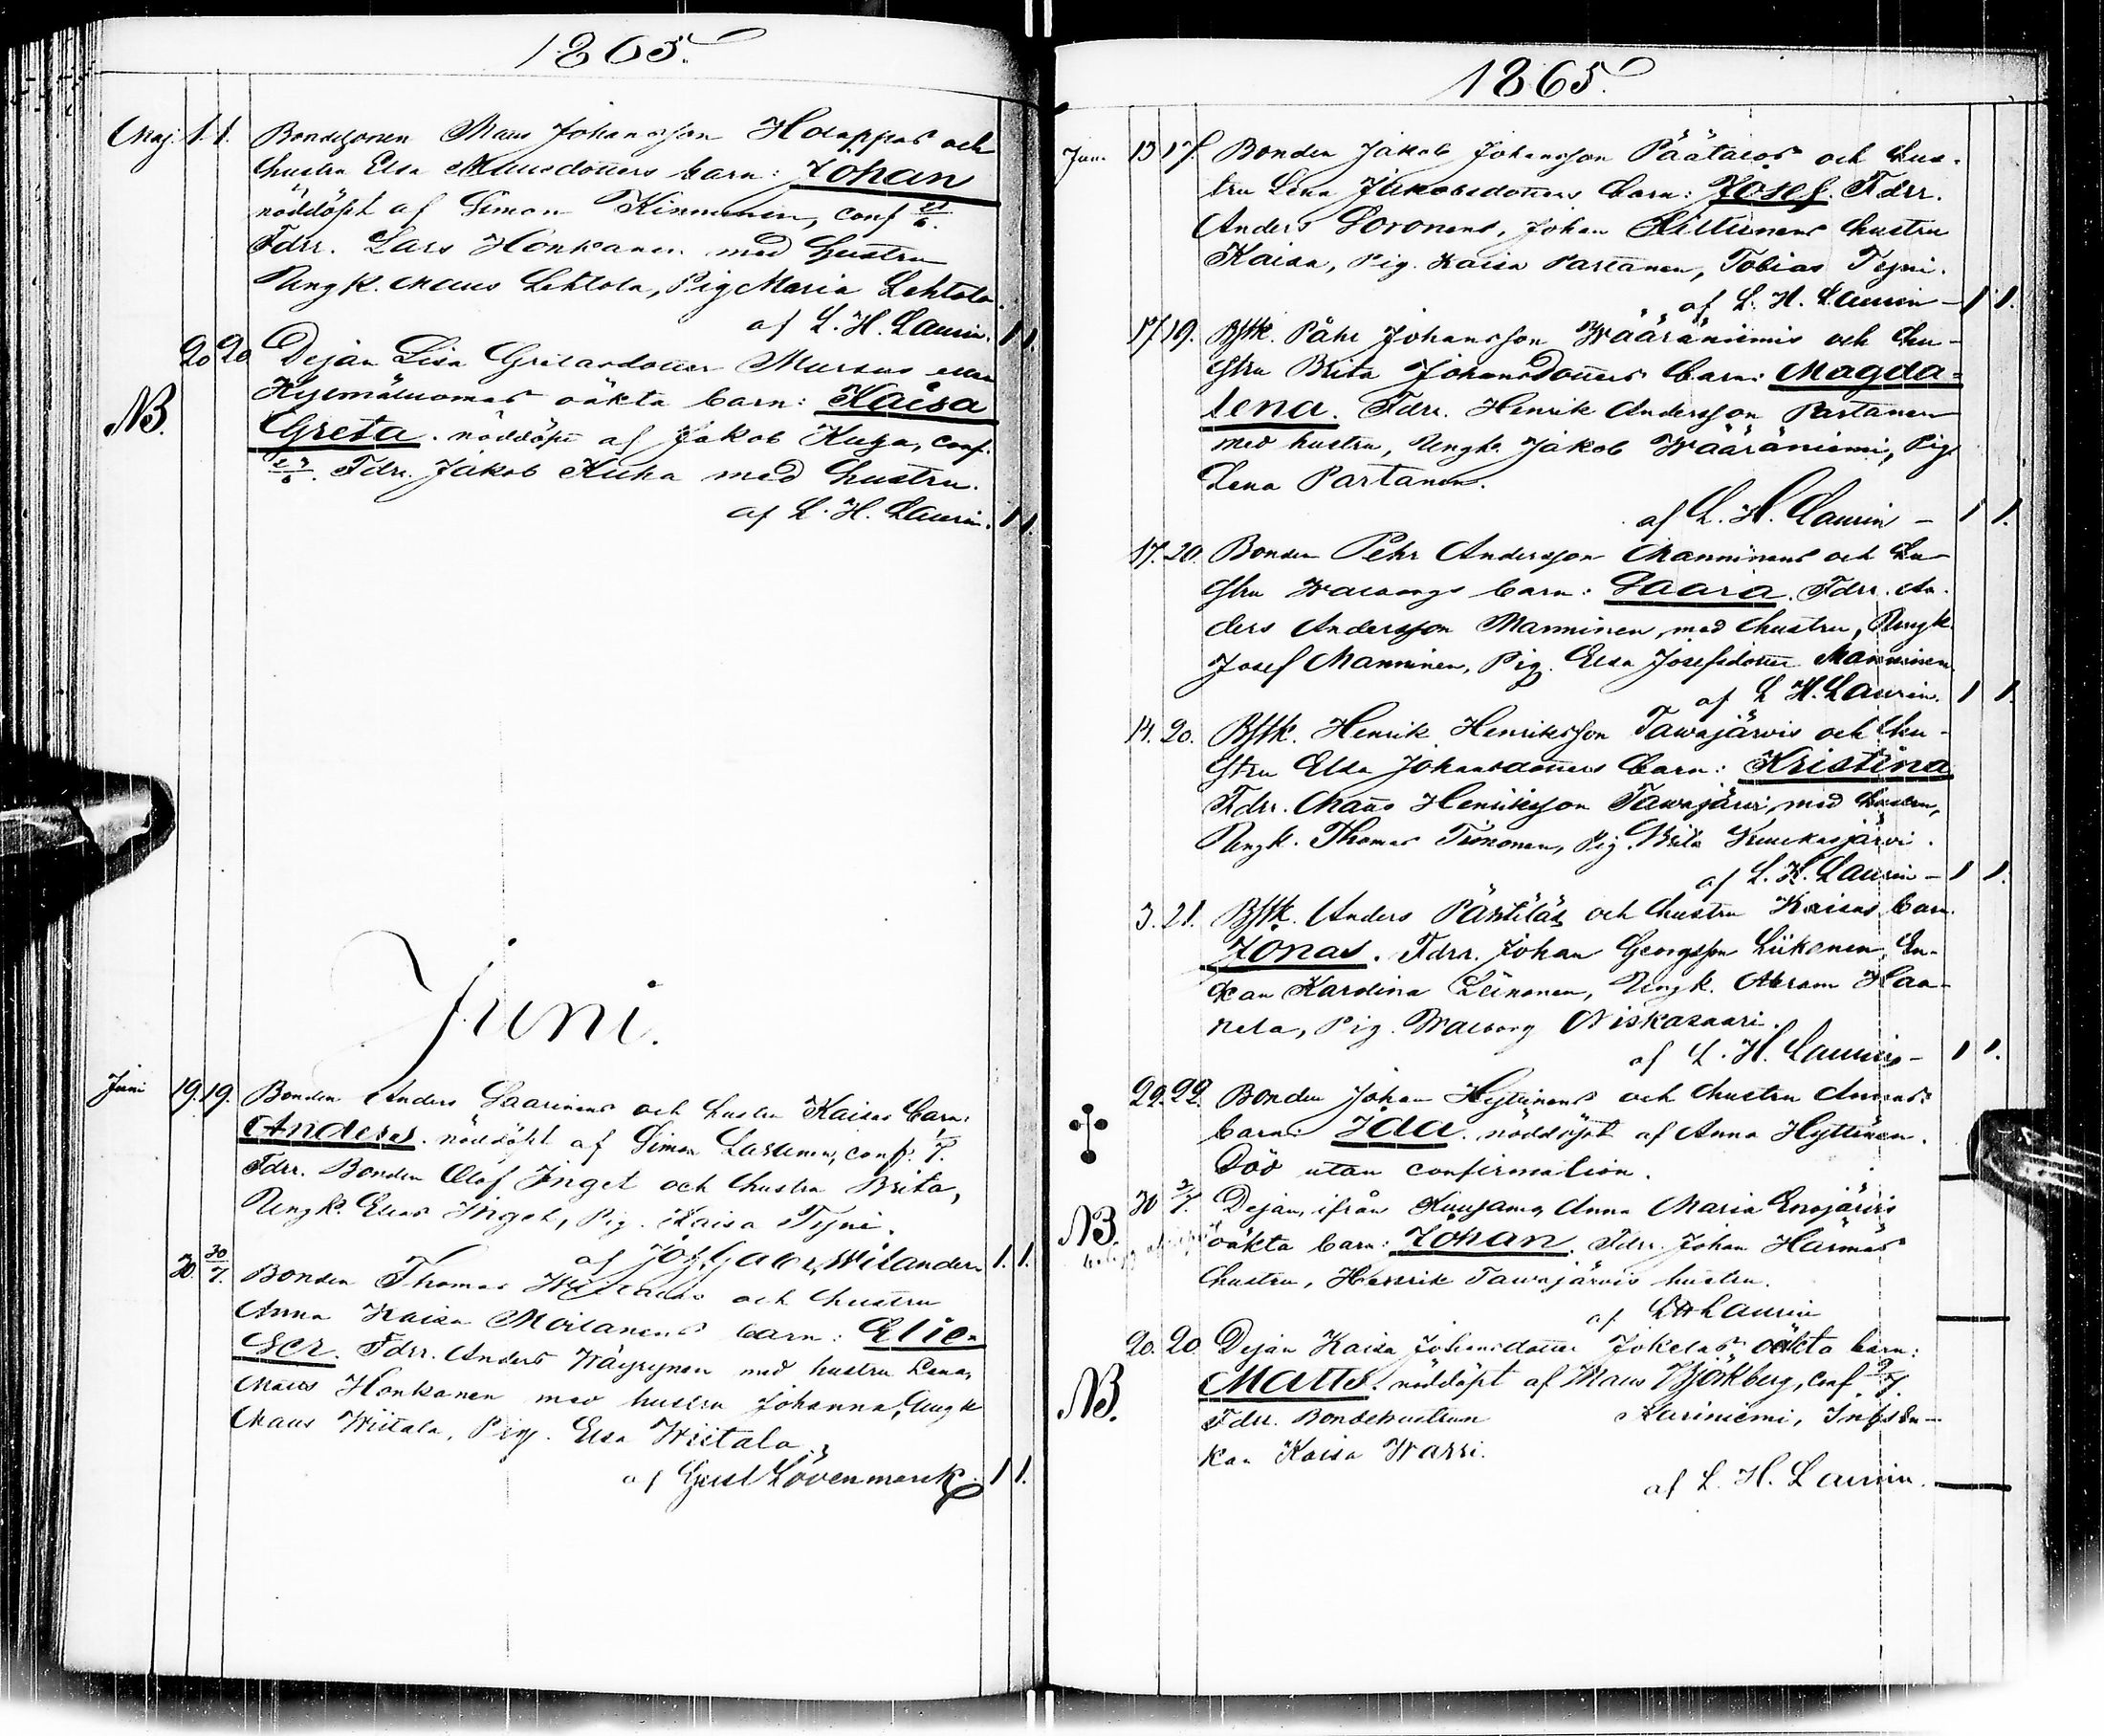 1865.
Maj. 1. 1. Bondesonen Maus Johansson Holappas och
hustru Elsa Mausdotters barn: Johan
nöddöpt af Simon Kinnunen, conf
Fdrr. Lars Honkanen med hustru
Ungk. Maus Lehtola, Pig Maria Lehtola.
af L. H. Laurin. 1 1.
20 20 Dejan Lisa Mursus eller
NB. oäkta barn: Kaisa
Greta. nöddöpt af Jakob Kuha, conf.
Fdrr. Jakob Kuha med hustru.
af L. H. Laurin. 1 1.
Juni.
Juni 19. 19. Bonden Anders Saarinens och hustru Kaisas barn:
Anders. nöddöpt af Simon conf.
Fdrr. Bonden Olof Inget och hustru Brita,
Ungk. Elias Inget, Pig. Kaisa Tyni.
af Wilander. 1. 1.
30. 30/7. Bonden Thomas och hustru
Anna Kaisa Moilanens barn: Elie-
ser. Fdrr. Anders Wäyrynen med hustru Lena,
Maus Honkanen med hustru Johanna, Ungk
Maus Wiitala, Pig. Elsa Wiitala.
af Gust Lövenmark. 1 1.
1865.
Juni 13 17. Bonden Jakob Johansson Päätalos och hus-
tru Lena Jakobsdotters barn: Josef. Fdrr.
Anders Soronens, Johan Kittunens hustru
Kaisa, Pig. Kaisa Partanen, Tobias Tyni.
af L. H. Laurin – 1 1.
17 19. Bstk. Pähr Johansson Wääräniemis och hu-
stru Brita Johansdotters barn: Magda-
lena. Fdrr. Henrik Andersson Partanen
med hustru, Ungk. Jakob Wääräniemi, Pig
Lena Partanen.
af L. H. Laurin – 1 1.
17. 20. Bonden Pehr Andersson Manninens och hu-
stru Walborgs barn: Saara. Fdrr. An-
ders Andersson Manninen med hustru, Ungk.
Josef Manninen, Pig. Elsa Josefsdotter Manninen
af L H. Laurin. 1 1.
14. 20. Bstk. Henrik Henriksson Tawajärwis och hu-
stru Elsa Johansdotters barn: Kristina
Fdrr. Maus Henriksson Tawajärwi, med hustru,
Ungk. Thomas Timonen, Pig. Brita
af L. H. Laurin – 1 1.
3. 21. Bstk. Anders Pärttiläs och hustru Kaisas barn
Jonas. Fdrr. Johan Georgsson Liikanen, En-
kan Karolina Leinonen, Ungk. Abram Haa-
nela, Pig. Walborg Niskasaari.
af L. H. Laurin – 1 1.
22. 22. Bonden Johan Hyttinens och hustru Annas
barn: Ida. nöddöpt af Anna Hyttinen.
Död utan confirmation.
30 2/7. Dejan, ifrån Kuusamo, Anna Maria Enojärwis
NB. oäkta barn: Johan. Fdrr. Johan Härmäs
hustru, Henrik Tawajärwis hustru.
af L H Laurin
20. 20 Dejan Kaisa Johansdotter Jokelas oäkta barn:
NB. Matts. nöddöpt af Maus Björkberg, conf.
Fdrr. Bondehustrun Kariniemi,
kan Kaisa Warsi.
af L. H. Laurin.